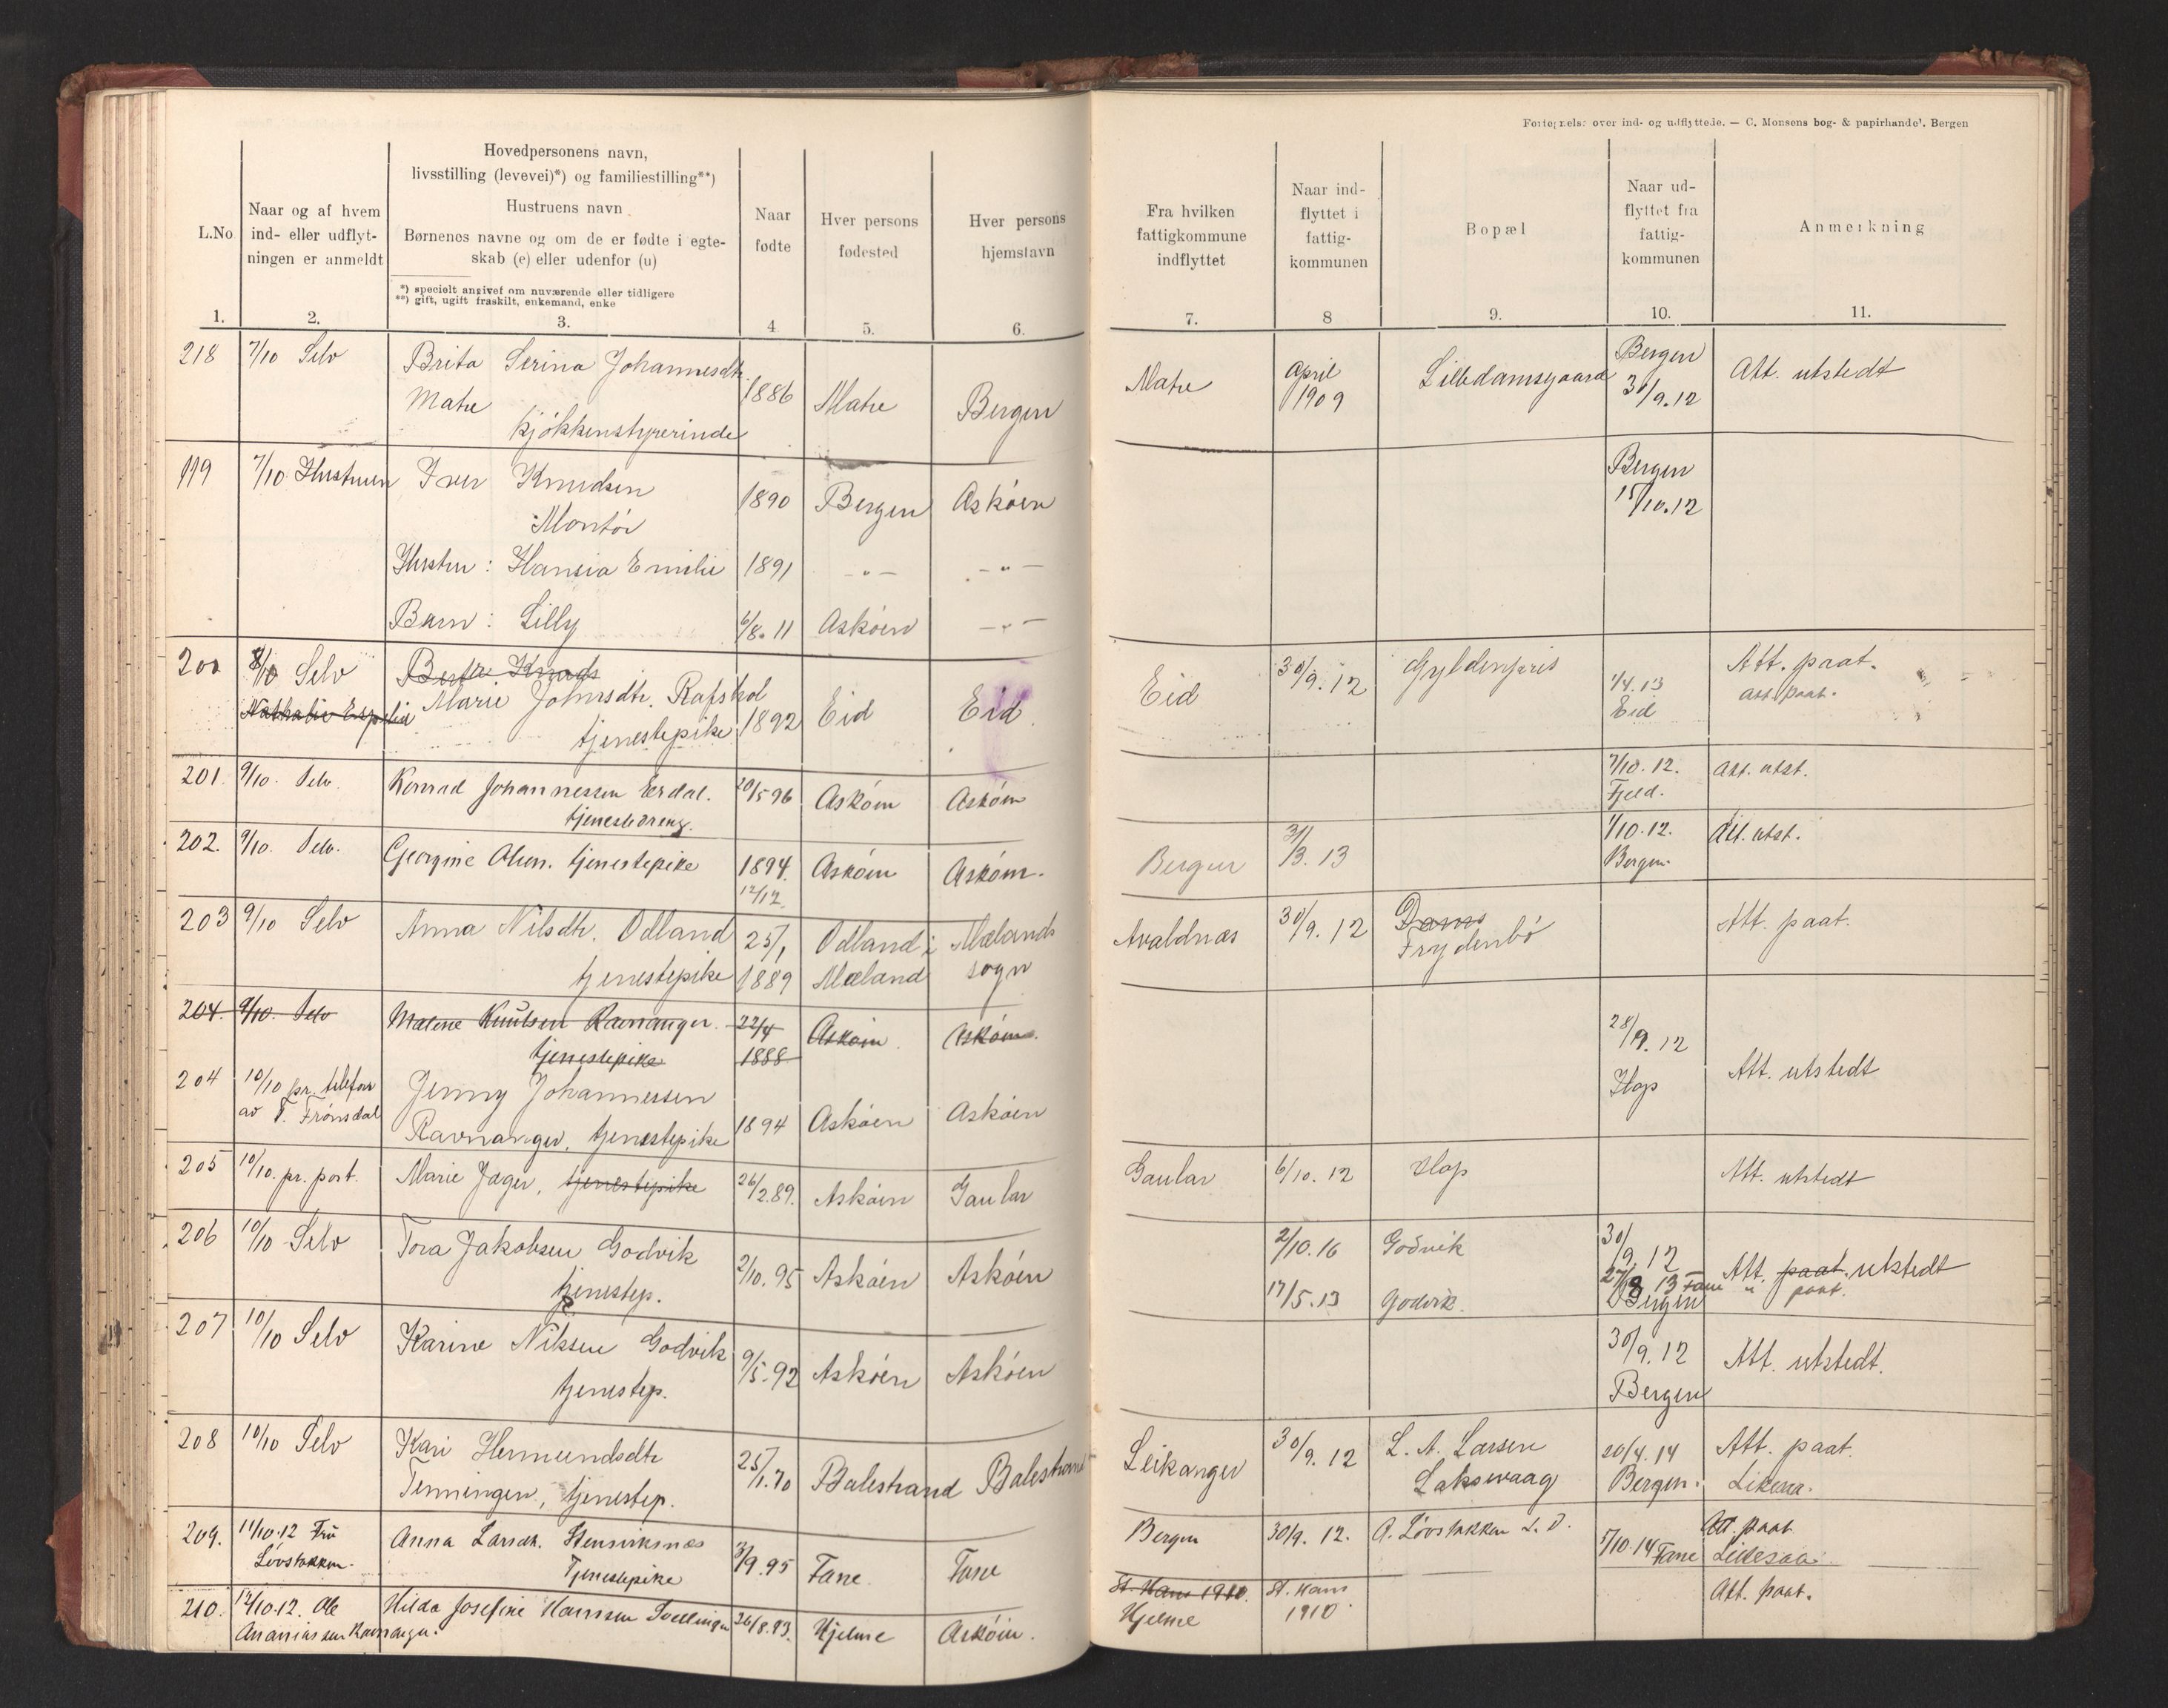 Fortegnelse over ind- og udflyttede. — C. Monsens bog- & papirhandel. Bergen
L.No
Naar og af hvem
ind- eller udflyt-
ningen er anmeldt
Hovedpersonens navn,
livsstilling (levevei)*) og familiestilling**)
Hustruens navn
Børnenes navne og om de er fødte i egte-
skab (e) eller udenfor (u)
*) specielt angivet om nuværende eller tidligere
**) gift, ugift fraskilt, enkemand, enke
Naar
fødte
Hver persons
fødested
Hver persons
hjemstavn
Fra hvilken
fattigkommune
indflyttet
Naar ind-
flyttet i
fattig-
kommunen
Bopæl
Naar ud-
flyttet fra
fattig-
kommunen
Anmerkning
1. 2. 3. 4 5. 6. 7. 8 9. 10. 11.
218 7/10 Selv Brita Serina Johannesdtr. Bergen
Matre 1886 Matre Bergen Matre April 1909 Lilledamsgaard 30/9.12 Att. utstedt
kjøkkenstyrerinde
199 7/10 Hustruen Iver Knudsen 1890 Bergen Askøen Bergen
Montör 15/10.12
Hustru: Hansia Emilie 1891 -"- -"-
Barn: Lilly 6/8.11 Askøen -"-
200 8/10 Selv Berta Knuds
Nathalie Espelid Marie Johnsdtr. Rafskol Eid 30/9.12 Gyldenpris 1/4.13 Att. paat.
tjenestepike 1892 Eid Eid Eid att. paat.
201. 9/10. Selv. Konrad Johannessen Erdal. 20/5 96 Askøen Askøen 7/10.12. Att. utst.
tjenestedreng. Fjeld.
202. 9/10. Selv. Georgine Olsen. tjenestepike 1894. Askøen Askøen. Bergen 31/3.13 1/10.12. Att. utst.
12/12. Bergen.
203 9/10 Selv Anna Nilsdtr. Odland 25/1 Odland i Mælands Avaldnæs 30/9.12 Dams Att. paat.
tjenestepike 1889 Mæland sogn Frydenbø
204. 9/10. Selv Malene Knutsen Ravnanger. 22/4 Askøen. Askøen.
tjenestepike 1888
204 10/10 pr. telefon Jenny Johannessen 28/9.12
av T. Frønsdal Ravnanger, tjenestepike 1894 Askøen Askøen Hop Att. utstedt
205 10/10. pr. post. Marie Jager, tjenestepike 26/2.89. Askøen Gaular Gaular 6/10.12 Hop Att. utstedt
206 10/10 Selv Tora Jakobsen Godvik 2/10.95 Askøen Askøen 2/10.16 Godvik 30/9.12 Att. paat. utstedt
tjenestep. 17/5.13 Godvik. 27/8 13 Fane " paat.
Bergen
207 10/10 Selv Karine Nilsen Godvik 9/5.92 Askøen Askøen 30/9.12 Att. utstedt.
tjenestep. Bergen
208 10/10 Selv Kari Hermundsdtr 25/1.70 Balestrand Balestrand Leikanger 30/9.12 L. A. Larsen 20/4.14 Att. paat.
Tenningen, tjenestep. Laksevaag Bergen.
209. 11/10.12 Fru Anna Larsdtr. Henriksnæs 3/9.95 Fane Fane Bergen 30/9.12. A. Løvstakken L. D. 5/10.14 Fane Att. paat
Løvstakken. Tjenestepike
210. 12/10.12. Ole Hilda Josefine Hansen 26/8.93. Hjelme Askøen. St. Hans 1910. St. Hans Att. paat.
Ananiassen Ravnanger. Hjelme 1910.